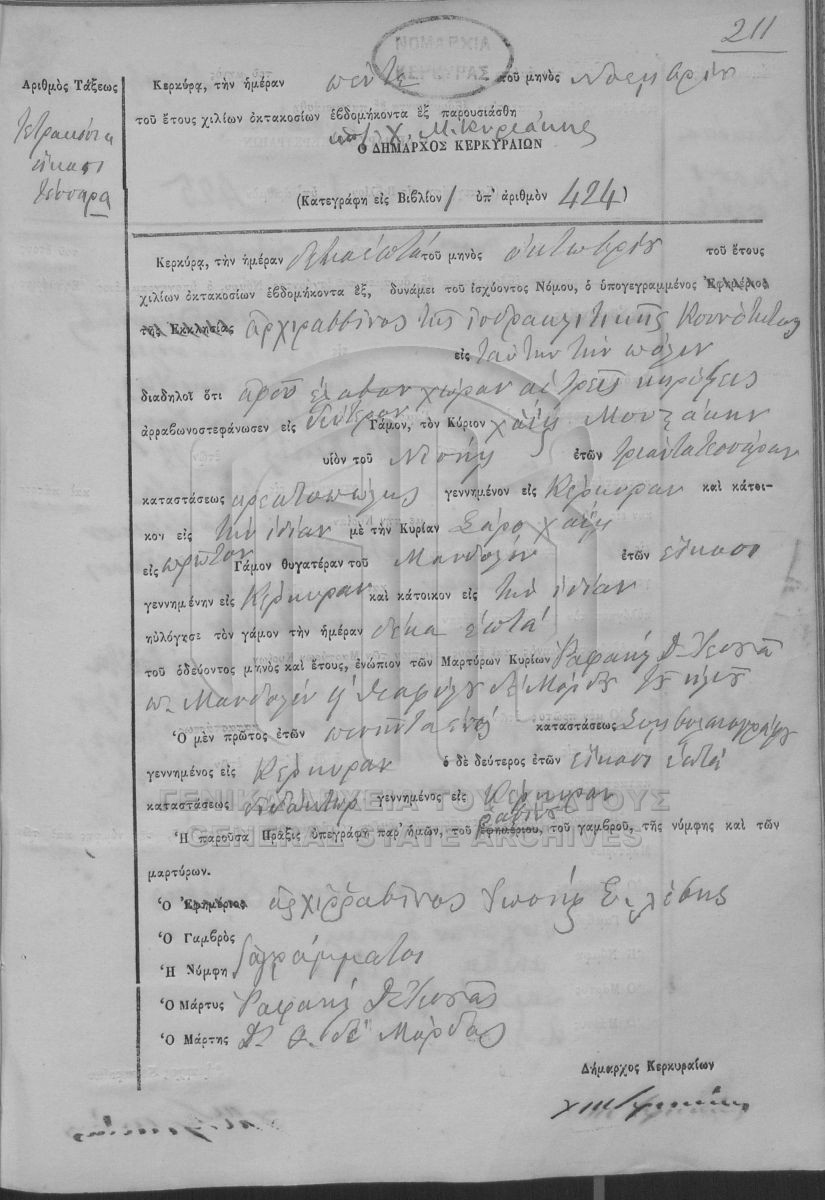 211
ΝΟΜΑΡΧΙΑ
ΚΕΡΚΥΡΑΣ
Ἀριθμὸς Τάξεως
τετρακόσια
εἴκοσι
τέσσαρα
Κερκύρᾳ, τὴν ἡμέραν πέντε τοῦ μηνὸς Νοεμβρίου
τοῦ ἔτους χιλίων ὀκτακοσίων ἑβδομήκοντα ἓξ παρουσιάσθη
Χ. Μ. Κυριάκης
Ο ΔΗΜΑΡΧΟΣ ΚΕΡΚΥΡΑΙΩΝ
(Κατεγράφη εἰς Βιβλίον 1 ὑπ' ἀριθμὸν 424)
Κερκύρᾳ, τὴν ἡμέραν δεκαεπτά τοῦ μηνὸς ὀκτωβρίου τοῦ ἔτους
χιλίων ὀκτακοσίων ἑβδομήκοντα ἓξ, δυνάμει τοῦ ἰσχύοντος Νόμου, ὁ ὑπογεγραμμένος Ἐφημέριος
τῆς Ἐκκλησίας ἀρχιραββῖνος τῆς ἰσραηλιτικῆς Κοινότητος
εἰς ταύτην τὴν πόλιν
διαδηλοῖ ὅτι ἀφοῦ ἔλαβαν χώραν αἱ τρεῖς κηρύξεις
ἀρραβωνοστεφάνωσεν εἰς δεύτερον Γάμον, τὸν Κύριον Χαΐμ Μουζάκην
υἱὸν τοῦ ἐτῶν τριαντατεσσάρων
καταστάσεως κρεατοπώλης γεννημένον εἰς Κέρκυραν καὶ κάτοι-
κον εἰς τὴν ἰδίαν μὲ τὴν Κυρίαν Σάρα Χαΐμ
εἰς πρῶτον Γάμον θυγατέραν τοῦ Μανδολῆν ἐτῶν εἴκοσι
γεννημένην εἰς Κέρκυραν καὶ κάτοικον εἰς τὴν ἰδίαν
ηὐλόγησε τὸν γάμον τὴν ἡμέραν δέκα ἑπτά
τοῦ ὁδεύοντος μηνὸς καὶ ἔτους, ἐνώπιον τῶν Μαρτύρων Κυρίων Ραφαὴλ
Μανδολῆν δε Μόρδος
Ὁ μὲν πρῶτος ἐτῶν πενῆντα ἑνός καταστάσεως Συμβολαιογράφος
γεννημένος εἰς Κέρκυραν ὁ δὲ δεύτερος ἐτῶν εἴκοσι ἑπτά
καταστάσεως γεννημένος εἰς Κέρκυραν
Ἡ παροῦσα Πρᾶξις ὑπεγράφη παρ' ἡμῶν, τοῦ ἐφημερίου, ραβίνου τοῦ γαμβροῦ, τῆς νύμφης καὶ τῶν
μαρτύρων.
Ὁ Ἐφημέριος ἀρχιρραβῖνος Ἰωσήφ
Ὁ Γαμβρὸς
Ἡ Νύμφη ἀγράμματοι
Ὁ Μάρτυς Ραφαὴλ
Ὁ Μάρτης δε Μόρδος
Δήμαρχος Κερκυραίων
ΓΕΝΙΚΑ ΑΡΧΕΙΑ ΤΟΥ ΚΡΑΤΟΥΣ
GENERAL STATE ARCHIVES